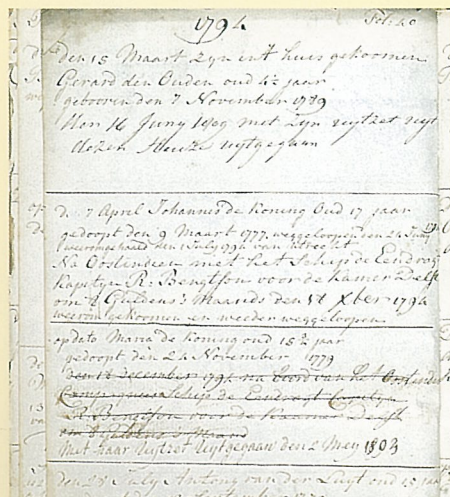 1794
Fol: 40
den 15 Maart Zyn in't huis gekoomen
Gerard den Ouden oud 4½ jaar
gebooren den 7 November 1789
16 Juny 1809 met Zyn uytzet uyt
dezen Huize uytgegaan
d. 7 April Johannes de Koning Oud 17 jaar
gedoopt den 9 Maart 1777. weggeloopen den 24 Juny
weeromgehaald den 1 July 1794 van utrecht
Na Oostindien met het Schip de Eendragt
Kapityn R: Bengtson voor de Kamer Delft
om 8 Guldens 's Maands den 18 Xber 1794
weerom gekoomen en weeder weggeloopen
op dato Maria de Koning oud 15 jaar
gedoopt den 24 November 1779
den 18 december 1794 na boord van het Oostindies
Compagnies Schip de Eendragt Capityn
R Bengtson voor de Kaamer Delft
om 8 guldens 's Maand
Met haar Uytzet Uytgegaan den 2 Mey 1803
den 28 July Antony van der Luyt oud 15 jaar